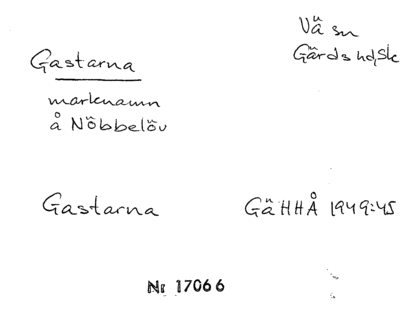 Vä sn
Gärds hd, Sk
Gastarna
marknamn
å Nöbbelöv
Gastarna GäHHÅ 1949:45
Nr 17066